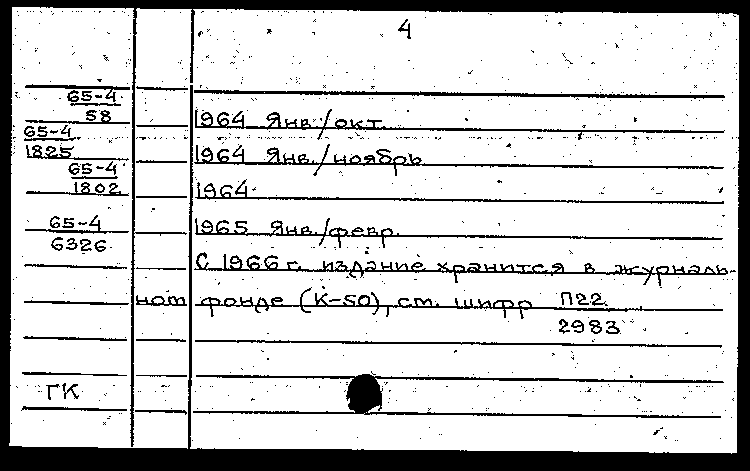 4
65-4
58
1964 Янв./окт.
65-4
1825
1964 Янв./ноябрь
65-4
1802
1964
65-4
6326
1965 Янв./февр.
С 1966 г. издание хранится в журналь-
ном фонде (К-50), ст. шифр П22
2983
ГК